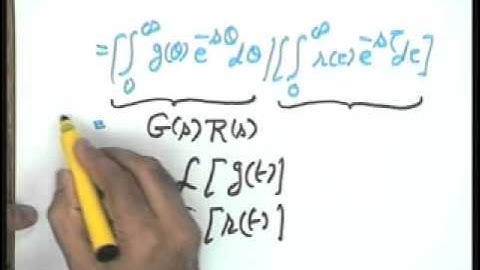 = [∫₀^∞ g(θ) e^{-sθ} dθ] [∫₀^∞ r(τ) e^{-sτ} dτ]
= G(s) R(s)
L [g(t)]
[r(t)]